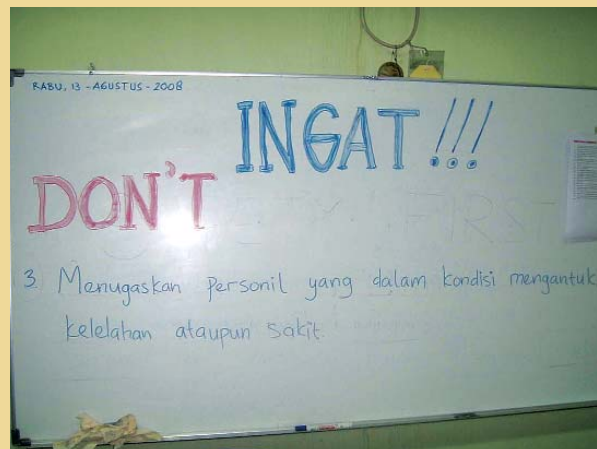 RABU, 13 - AGUSTUS - 2008
INGAT !!!
DON'T
SAFETY FIRST
3. Menugaskan personil yang dalam kondisi mengantuk
kelelahan ataupun sakit.